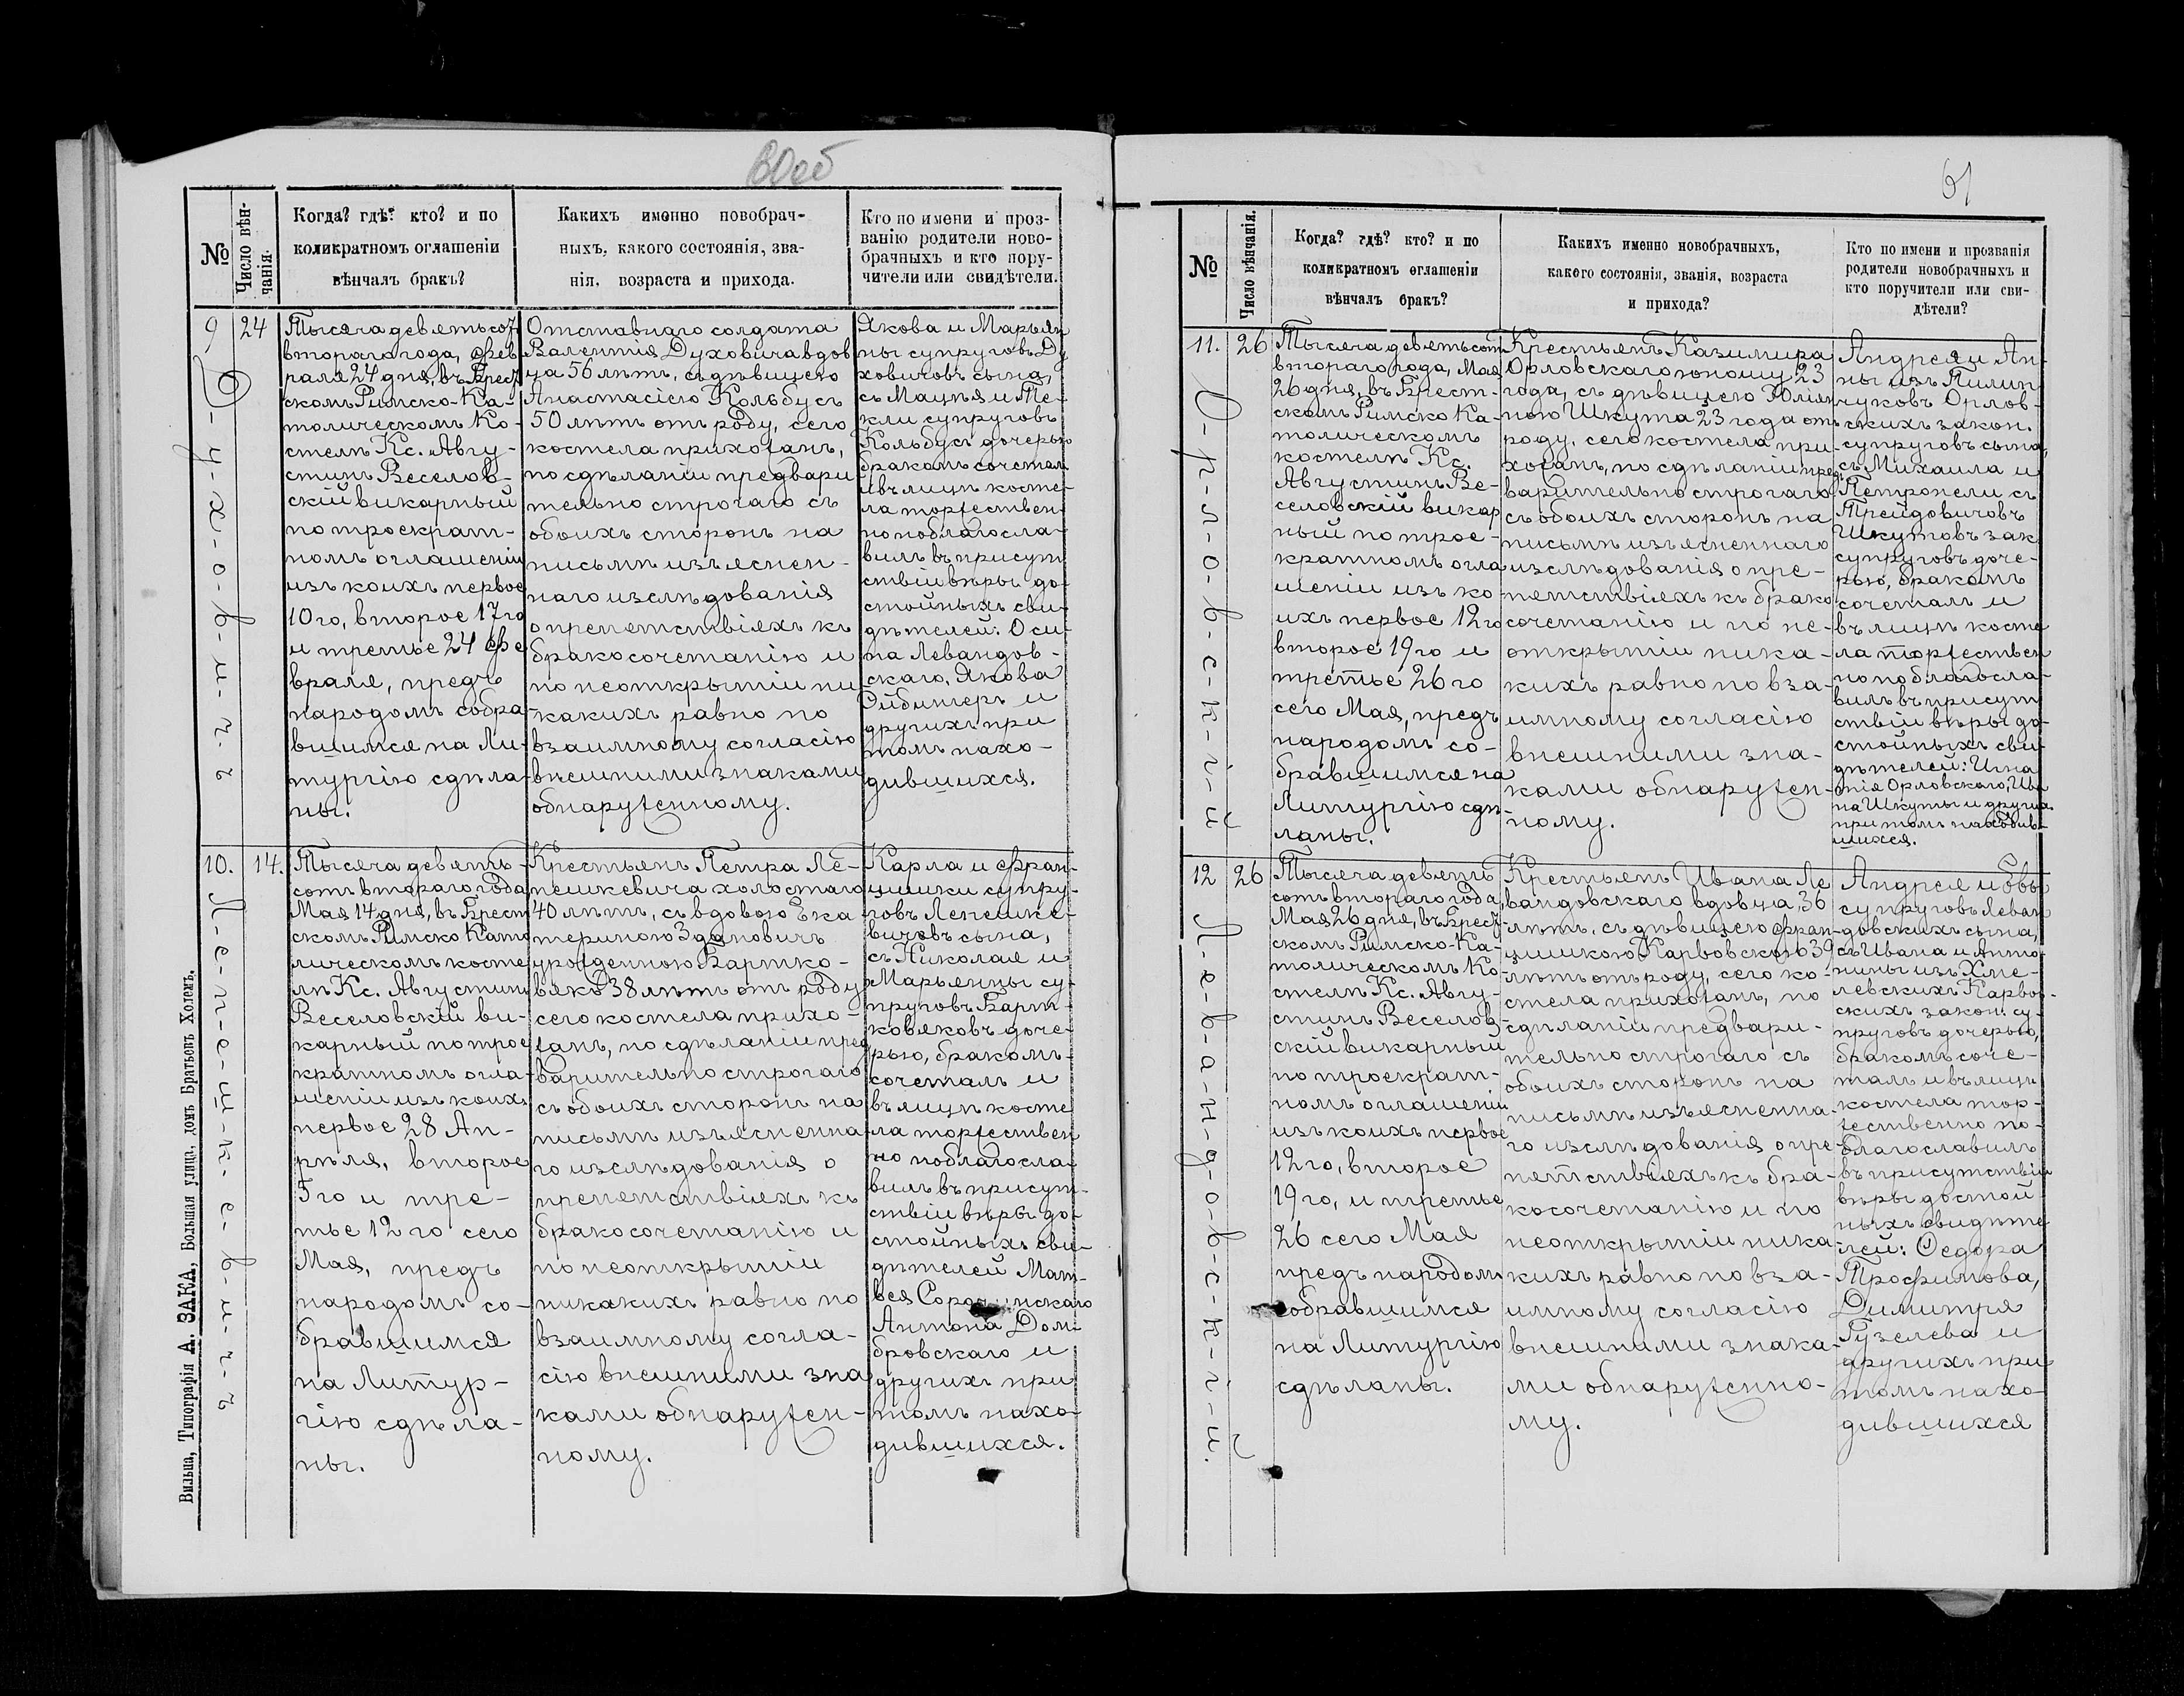 60об
№
Число вѣн-
чанія.
Когда? гдѣ? кто? и по
коликратномъ оглашеніи
вѣнчалъ бракъ?
Какихъ именно новобрач-
ныхъ, какого состоянія, зва-
нія, возраста и прихода.
Кто по имени и проз-
ванію родители ново-
брачныхъ и кто пору-
чители или свидѣтели.
9
24
Д-у-х-о-в-и-ч-ъ
Тысяча девятьсот
втораго года, Фев
раля 24 дня, въ Брест
скомъ Римско-Ка-
толическомъ Ко-
стелѣ Кс. Авгу-
стинъ Веселов-
скій викарный
по троекрат-
номъ оглашеніи
изъ коихъ первое
10го, второе 17го
и третье 24 Фе
враля, предъ
народомъ собра-
вшимся на Ли-
тургію сдѣла-
ны.
Отставнаго солдата
Валентія Духовича вдов
ца 56 лѣтъ, съ дѣвицею
Анастасіею Кольбусъ
50 лѣтъ отъ роду, сего
костела прихожанъ,
по сдѣланіи предвари
тельно строгаго съ
обоихъ сторонъ на
письмѣ изъяснен-
наго изслѣдованія
о препятствіяхъ къ
бракосочетанію и
по неоткрытіи ни-
какихъ равно по
взаимному согласію
внѣшними знаками
обнаруженному.
Якова и Марьян
ны супруговъ Ду
ховичовъ сына,
съ Мацѣя и Те-
кли супруговъ
Кольбусъ дочерью
бракомъ сочеталъ
и въ лицѣ косте-
ла торжествен-
но поблагосла-
вилъ въ присут
ствіи вѣры до-
стойныхъ сви-
дѣтелей: Оси-
па Левандов-
скаго, Якова
Дибитеръ и
другихъ при
томъ нахо-
дившихся.
10.
14.
Л-е-п-е-ш-к-е-в-и-ч-ъ
Тысяча девять-
сотъ втораго года
Мая 14 дня, въ Брест
скомъ Римско Като
лическомъ косте
лѣ Кс. Августинъ
Веселовскій ви-
карный по трое
кратномъ огла-
шеніи изъ коихъ
первое 28 Ап-
рѣля, второе
5го и тре-
тье 12го сего
Мая, предъ
народомъ со-
бравшимся
на Литур-
гію сдѣла-
ны.
Крестьянъ Петра Ле-
пешкевича холостаго
40 лѣтъ, съ вдовою Ека
териною Здановичъ
урожденною Бартко-
вякъ 38 лѣтъ отъ роду
сего костела прихо-
жанъ, по сдѣланіи пред
варительно строгаго
съ обоихъ сторонъ на
письмѣ изъясненна-
го изслѣдованія о
препятствіяхъ къ
бракосочетанію и
по неоткрытіи
никакихъ равно по
взаимному согла-
сію внѣшними зна
ками обнаружен-
ному.
Карла и Фран-
цишки супру-
говъ Лепешке-
вичовъ сына,
съ Николая и
Марьянны су-
пруговъ Барт-
ковяковъ доче-
рью, бракомъ-
сочеталъ и
въ лицѣ косте
ла торжествен
но поблагосла-
вилъ въ присут-
ствіи вѣры до-
стойныхъ сви-
дѣтелей Мат-
вея
Антона Дом-
бровскаго и
другихъ при
томъ нахо-
дившихся.
Вильна, Типографія А. ЗАКА, Большая улица, домъ Братьевъ Холемъ.
61
№
Число вѣнчанія.
Когда? гдѣ? кто? и по
коликратномъ оглашеніи
вѣнчалъ бракъ?
Какихъ именно новобрачныхъ,
какого состоянія, званія, возраста
и прихода?
Кто по имени и прозванія
родители новобрачныхъ и
кто поручители или сви-
дѣтели?
11.
26
О-р-л-о-в-с-к-і-й
Тысяча девятьсотъ
втораго года, Мая
26 дня, въ Брест-
скомъ Римско Ка-
толическомъ
костелѣ Кс.
Августинъ Ве-
селовскій викар
ный по трое-
кратномъ огла
шеніи изъ ко-
ихъ первое 12го
второе 19го и
третье 26го
сего Мая, предъ
народомъ со-
бравшимся на
Литургію сдѣ-
ланы.
Крестьянъ Казимира
Орловскаго юношу 23
года, съ дѣвицею Юліян
ною Шкута 23 года отъ
роду, сего костела при-
хожанъ, по сдѣланіи пред
варительно строгаго
съ обоихъ сторонъ на
письмѣ изъясненнаго
изслѣдованія о пре-
пятствіяхъ къ брако
сочетанію и по не-
открытіи ника-
кихъ равно по вза-
имному согласію
внѣшними зна-
ками обнаружен-
ному.
Андрея и Ан-
ны изъ Пилип
чуковъ Орлов-
скихъ закон.
супруговъ сына,
съ Михаила и
Петронели съ
Трейдовичовъ
Шкутовъ зак
супруговъ доче-
рью, бракомъ
сочеталъ и
въ лицѣ косте
ла торжествен
но поблагосла-
вилъ въ присут
ствіи вѣры до-
стойныхъ сви-
дѣтелей: Игна
тія Орловскаго, Ива
на Шкуты и другихъ
притомъ находив-
шихся.
12
26
Л-е-в-а-н-д-о-в-с-к-і-й.
Тысяча девять
сотъ втораго года,
Мая 26 дня, въ Брест
скомъ Римско-Ка-
толическомъ Ко-
стелѣ Кс. Авгу-
стинъ Веселов-
скій викарный
по троекрат-
номъ оглашеніи
изъ коихъ первое
12го, второе
19го, и третье
26 сего Мая
предъ народомъ
собравшимся
на Литургію
сдѣланы.
Крестьянъ Ивана Ле
вандовскаго вдовца, 36
лѣтъ, съ дѣвицею Фран-
цишкою Карвовскою 39
лѣтъ отъ роду, сего ко-
стела прихожанъ, по
сдѣланіи предвари-
тельно строгаго съ
обоихъ сторонъ на
письмѣ изъясненна-
го изслѣдованія о пре
пятствіяхъ къ бра-
косочетанію и по
неоткрытіи ника
кихъ равно по вза-
имному согласію
внѣшними знака-
ми обнаруженно-
му.
Андрея и Евы
супруговъ Леван
довскихъ сына,
съ Ивана и Анто
нины изъ Хме-
левскихъ Карвов-
скихъ закон. су-
пруговъ дочерью,
бракомъ соче-
талъ и въ лицѣ
костела тор-
жественно по-
благославилъ
въ присутствіи
вѣры достой
ныхъ свидѣте
лей: Ѳедора
Трофимова,
Димитрія
Гузелева и
другихъ при
томъ нахо-
дившихся